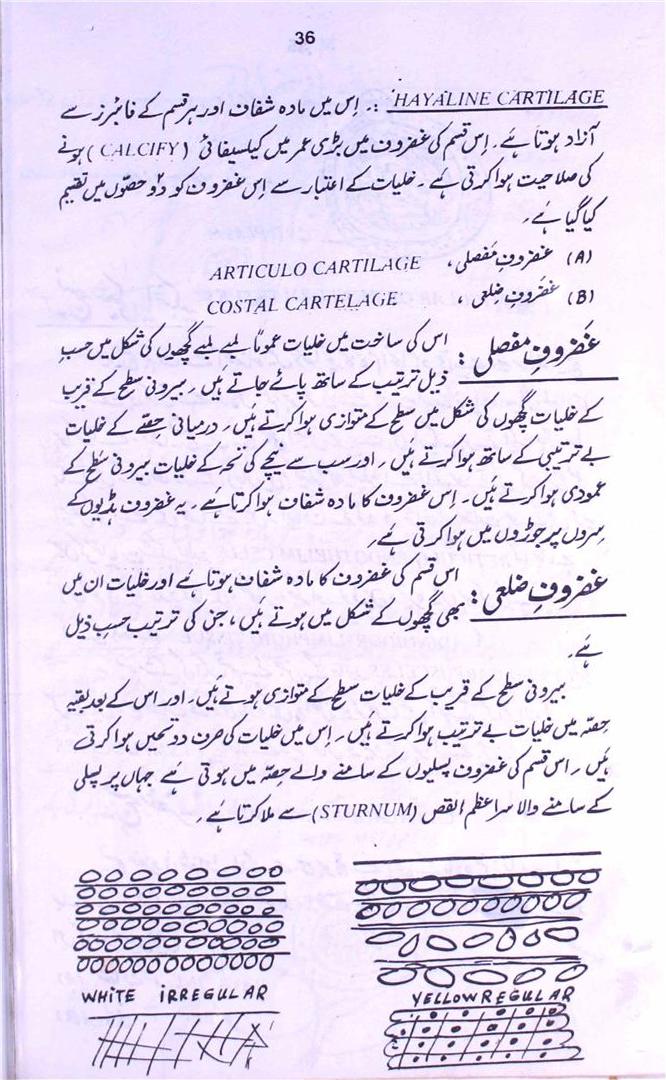 36
HAYALINE CARTILAGE :۔ اِس میں مادہ شفاف اور ہر قسم کے فائبرز سے
آزاد ہوتا ہے۔ اِس قسم کی غضروف میں بڑی عمر میں کیلسیفائی (CALCIFY) ہونے
کی صلاحیت ہوا کرتی ہے۔ خلیات کے اعتبار سے اِس غضروف کو دو حصّوں میں تقسیم
کیا گیا ہے۔
(A) غضروفِ مفصلی، ARTICULO CARTILAGE
(B) غضروفِ ضلعی، COSTAL CARTELAGE
غضروفِ مفصلی : اس کی ساخت میں خلیات عموماً لمبے لمبے گچھوں کی شکل میں حسبِ
ذیل ترتیب کے ساتھ پائے جاتے ہیں۔ بیرونی سطح کے قریب
کے خلیات گچھوں کی شکل میں سطح کے متوازی ہوا کرتے ہیں۔ درمیانی حصّے کے خلیات
بے ترتیبی کے ساتھ ہوا کرتے ہیں۔ اور سب سے نیچے کی تہہ کے خلیات بیرونی سطح کے
عمودی ہوا کرتے ہیں۔ اِس غضروف کا مادہ شفاف ہوا کرتا ہے۔ یہ غضروف ہڈیوں کے
سِروں پر جوڑوں میں ہوا کرتی ہے۔
غضروفِ ضلعی : اس قسم کی غضروف کا مادہ شفاف ہوتا ہے اور خلیات ان میں
بھی گچھوں کے شکل میں ہوتے ہیں، جن کی ترتیب حسبِ ذیل
ہے۔
بیرونی سطح کے قریب کے خلیات سطح کے متوازی ہوتے ہیں۔ اور اس کے بعد بقیہ
حصّہ میں خلیات بے ترتیب ہوا کرتے ہیں۔ اِس میں خلیات کی صرف دو تہیں ہوا کرتی
ہیں۔ اس قسم کی غضروف پسلیوں کے سامنے والے حصّہ میں ہوتی ہے جہاں پر پسلی
کے سامنے والا سرا عظم القص (STURNUM) سے ملا کرتا ہے۔
WHITE IRREGULAR
YELLOW REGULAR